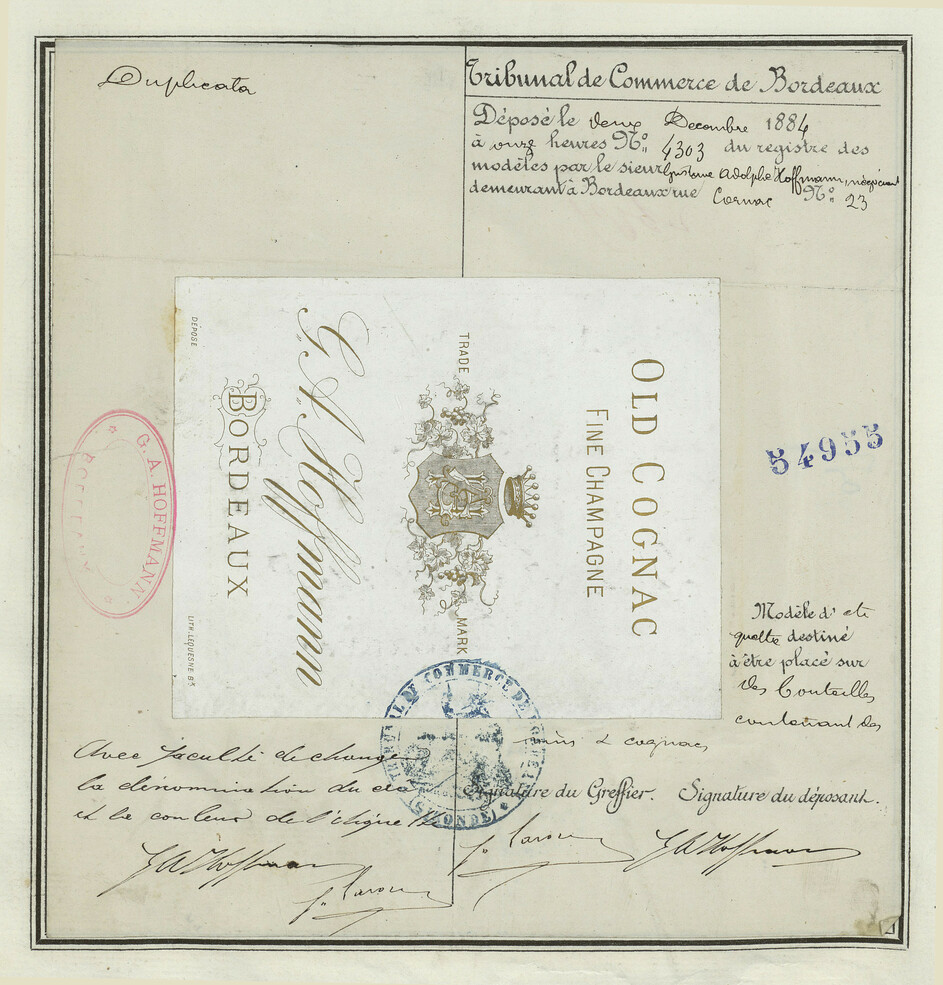 Duplicata
Tribunal de Commerce de Bordeaux
Déposé le deux Decembre 1884
à onze heures No. 4303 du registre des
modèles par le sieur Gustave Adolphe Hoffmann, négociant
demeurant à Bordeaux rue Cornac No. 23
OLD COGNAC
FINE CHAMPAGNE
TRADE
MARK
G. A. Hoffmann
BORDEAUX
DÉPOSÉ
LITH. LEQUESNE Bx
G. A. HOFFMANN
BORDEAUX
54955
Modèle d'eti
quette destiné
à être placé sur
des bouteilles
contenant des
vins & cognacs
TRIBUNAL DE COMMERCE DE BORDEAUX
(GIRONDE)
Avec faculté de changer
la dénomination du
et la couleur de l'étiquette
Signature du Greffier. Signature du déposant.
GA Hoffmann
GA Hoffmann